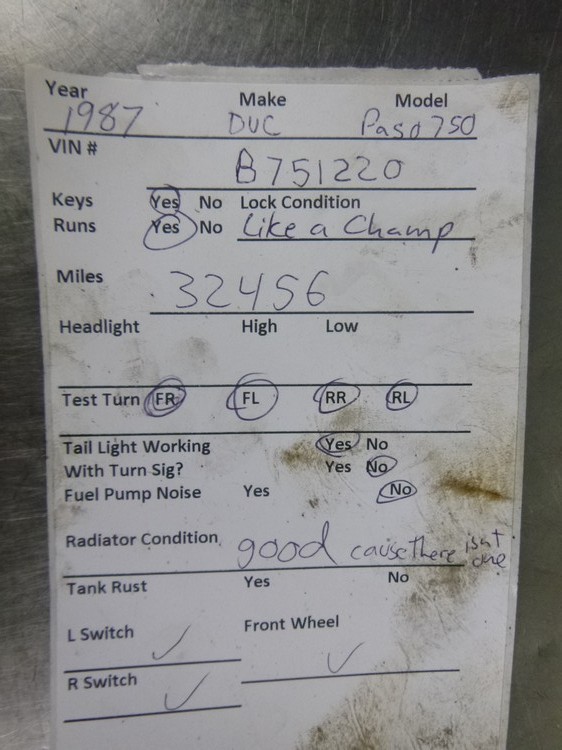 Year Make Model
1987 DUC Paso 750
VIN #
B751220
Keys Yes No Lock Condition
Runs Yes No Like a Champ
Miles 32456
Headlight High Low
Test Turn FR FL RR RL
Tail Light Working Yes No
With Turn Sig? Yes No
Fuel Pump Noise Yes No
Radiator Condition good cause there isnt one
Tank Rust Yes No
L Switch ✓ Front Wheel ✓
R Switch ✓